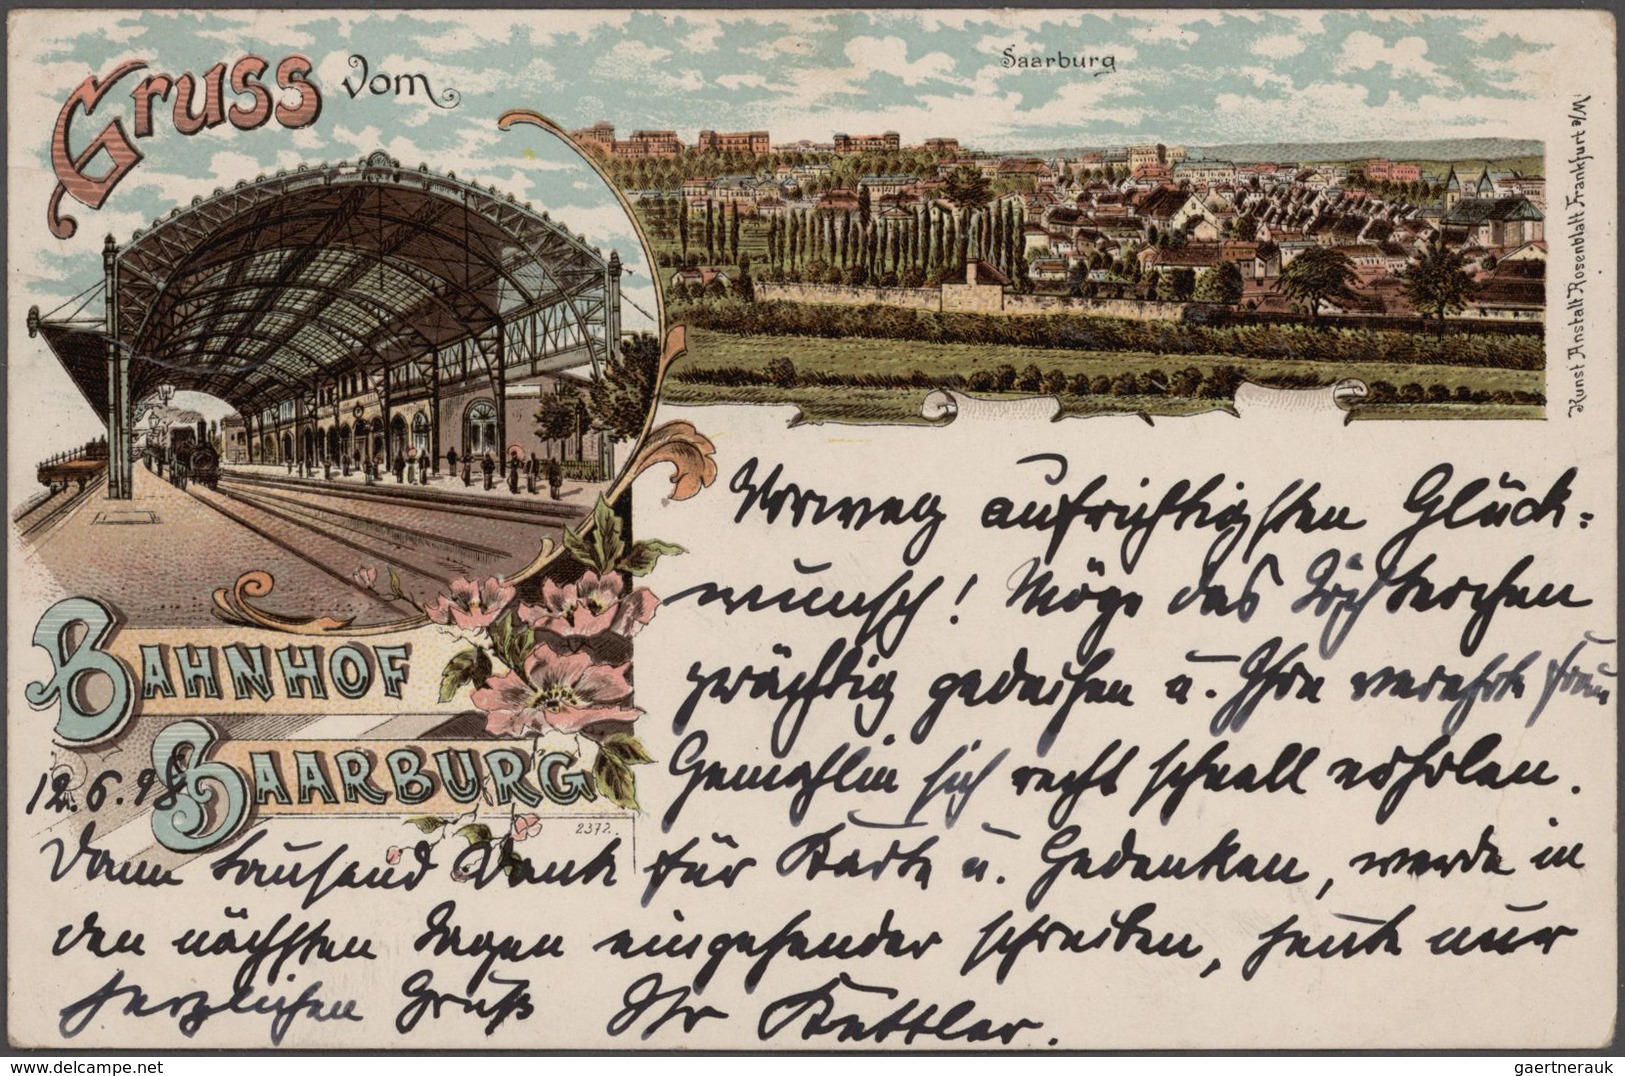 Gruss vom
Saarburg
Kunst Anstalt Rosenblatt Frankfurt a/M
BAHNHOF
SAARBURG
2372.
12.6.98
Vorweg aufrichtigsten Glück-
wunsch! Möge das Töchterchen
prächtig gedeihen u. Ihre verehrte Frau
Gemahlin sich recht schnell erholen.
Dann tausend Dank für Karte u. Gedenken, werde in
den nächsten Tagen eingehender schreiben, heute nur
herzlichen Gruß Ihr Kettler.
gaertnerauk